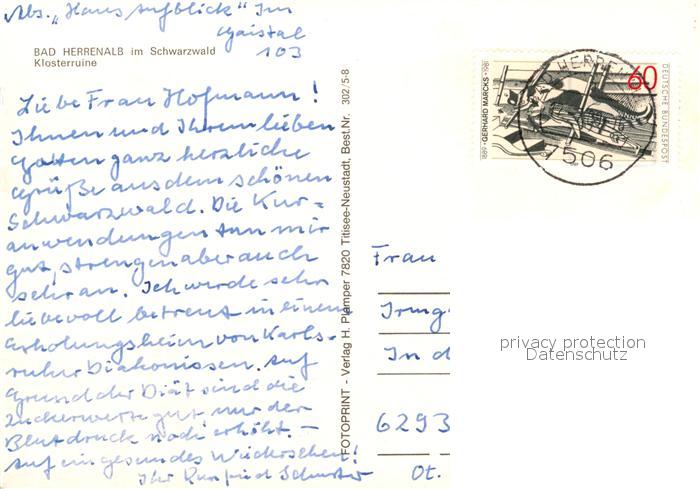 Abs. "Haus Aufblick" Im
Gaistal
103
BAD HERRENALB im Schwarzwald
Klosterruine
Liebe Frau Hofmann!
Ihnen und Ihrem lieben
Gatten ganz herzliche
Grüße aus dem schönen
Schwarzwald. Die Kur=
anwendungen tun mir
gut, strengen aber auch
sehr an. Ich werde sehr
liebevoll betreut in einem
Erholungsheim von Karls-
ruher Diakonissen. Auf
Grund der Diät sind die
Zuckerwerte gut nur der
Blutdruck noch erhöht. –
Auf ein gesundes Wiedersehen!
Ihr Schuster
FOTOPRINT - Verlag H. Plamper 7820 Titisee-Neustadt, Best.Nr. 302/5-8
1889 • GERHARD MARCKS • 1981
60
DEUTSCHE BUNDESPOST
7506
Frau
Irmg
In d
6293
Ot.
privacy protection
Datenschutz